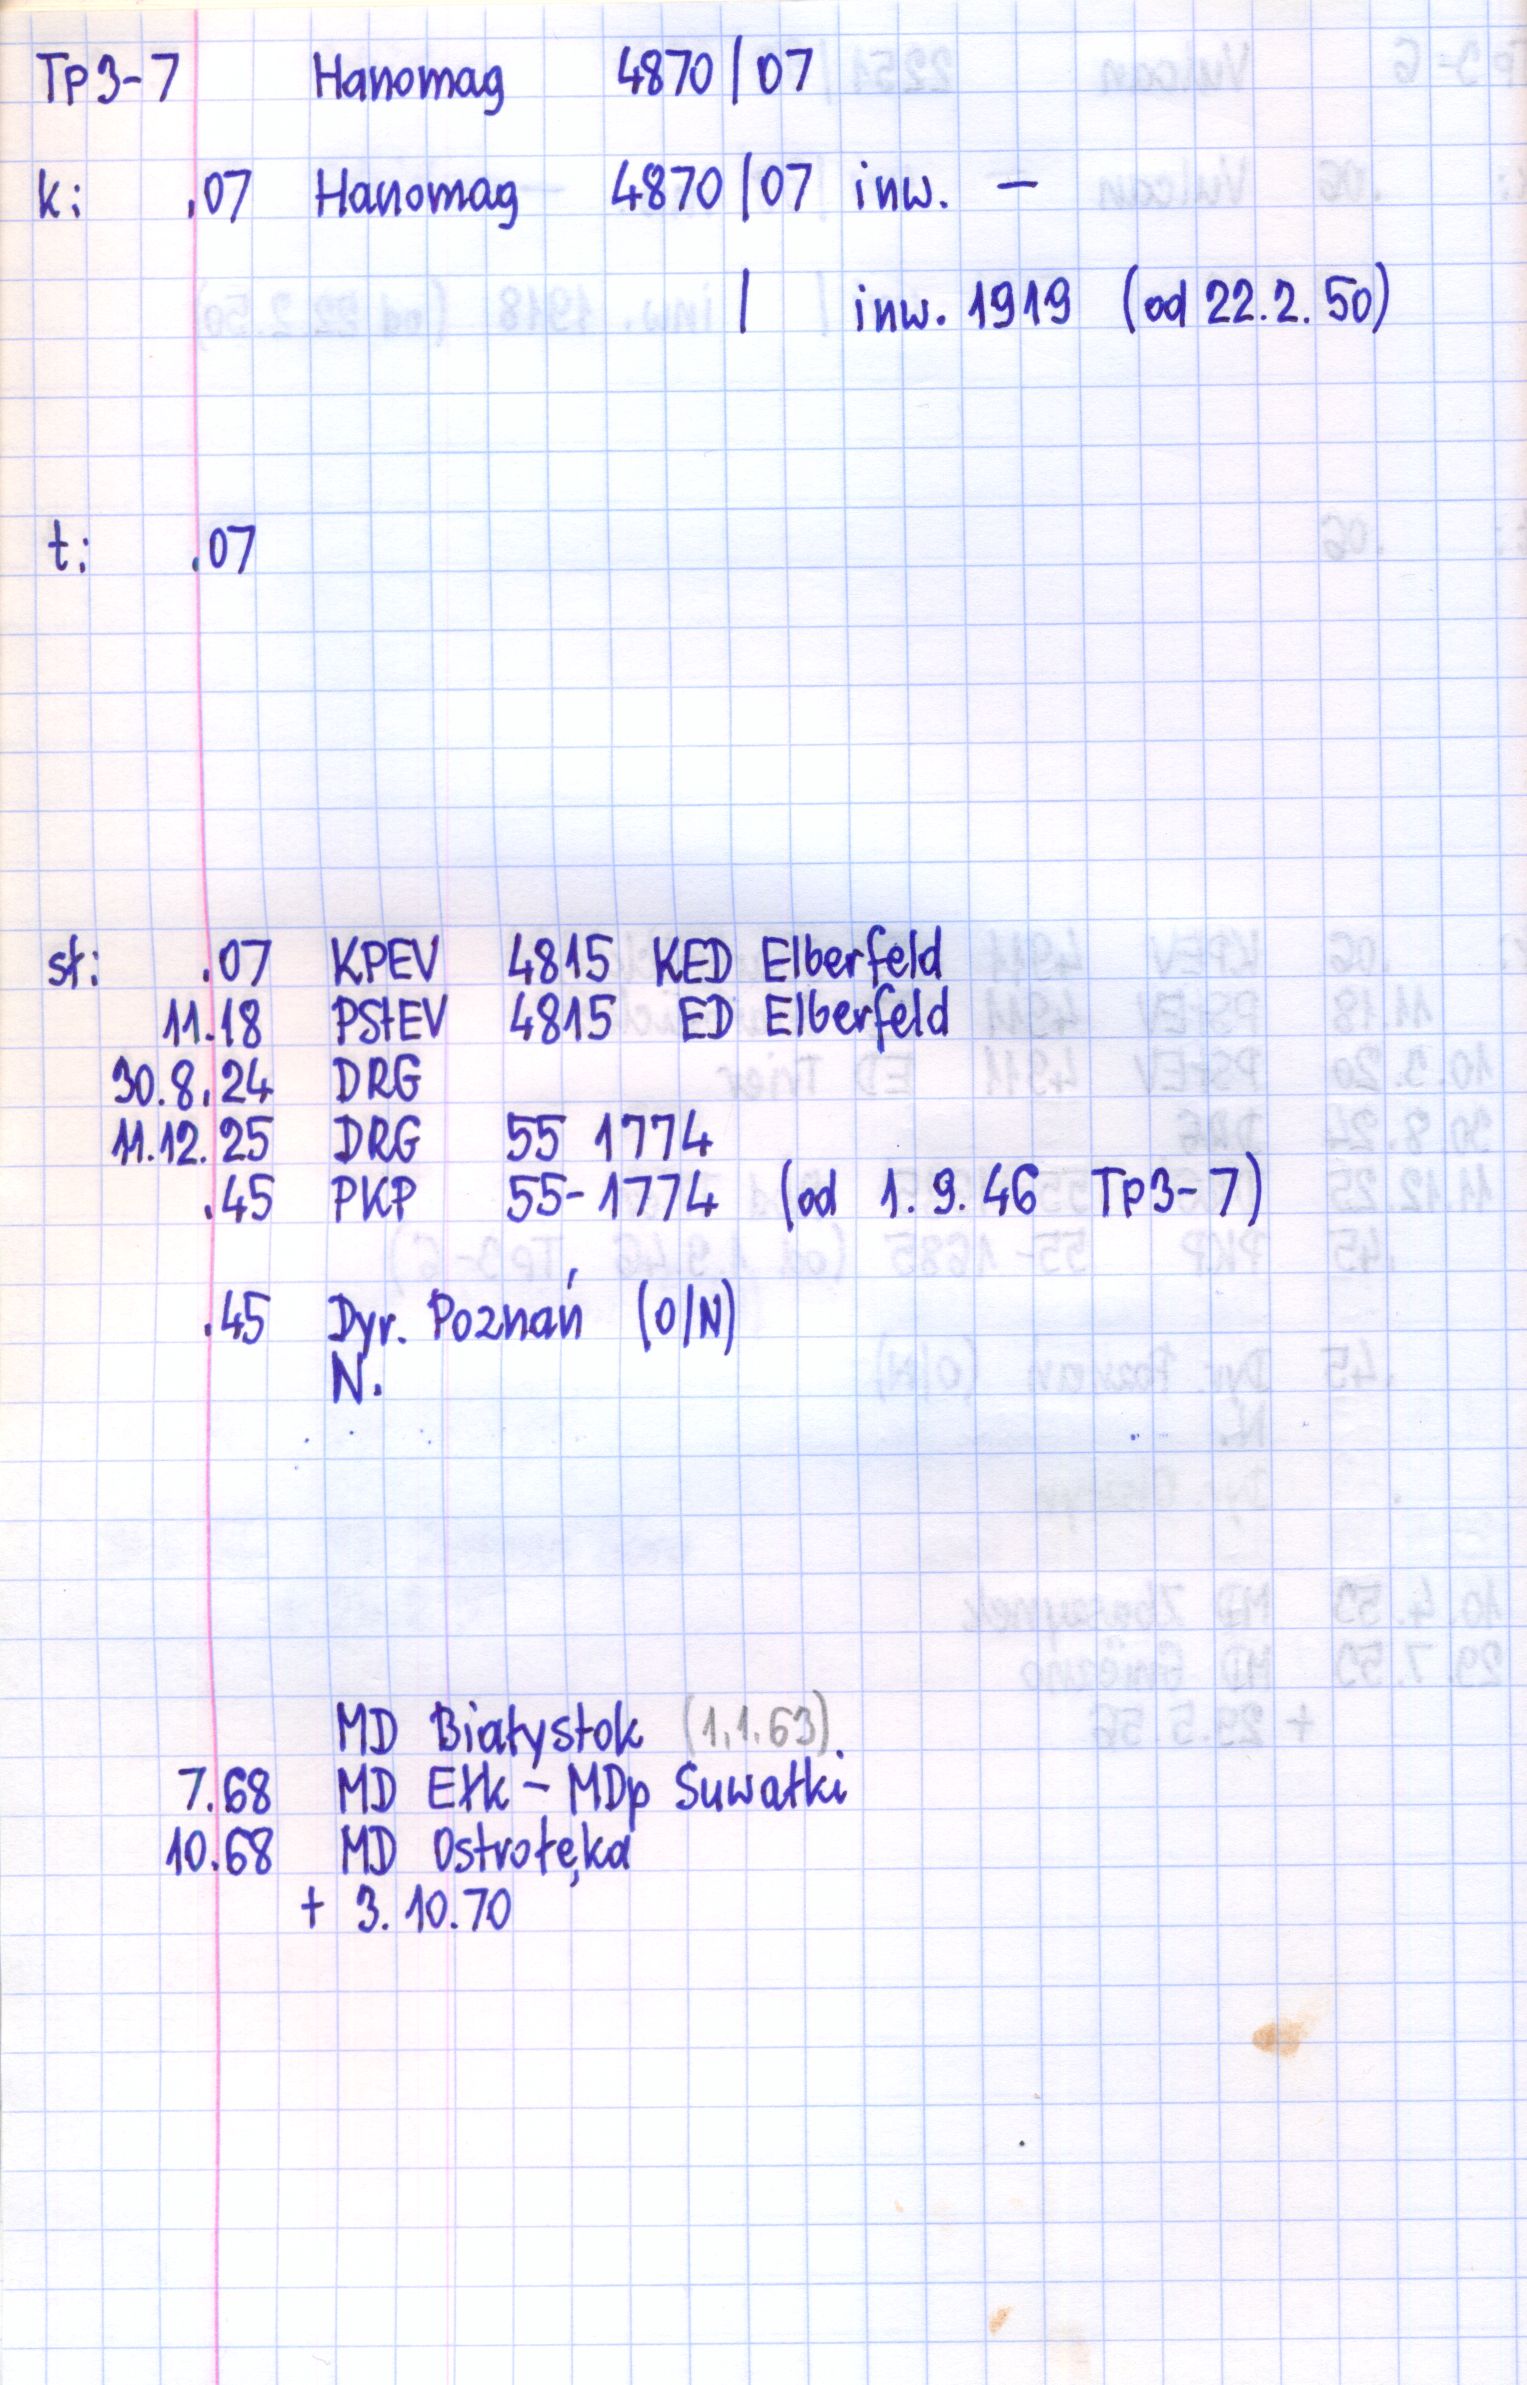 Tp3-7 Hanomag 4870/07
k: .07 Hanomag 4870/07 inw. –
/ inw. 1919 (od 22.2.50)
t: .07
st: .07 KPEV 4815 KED Elberfeld
11.18 PStEV 4815 ED Elberfeld
30.8.24 DRG
11.12.25 DRG 55 1774
.45 PKP 55-1774 (od 1.9.46 Tp3-7)
.45 Dyr. Poznań (O/N)
N.
MD Białystok (1.1.63)
7.68 MD Ełk – MDp Suwałki
10.68 MD Ostrołęka
+ 3.10.70